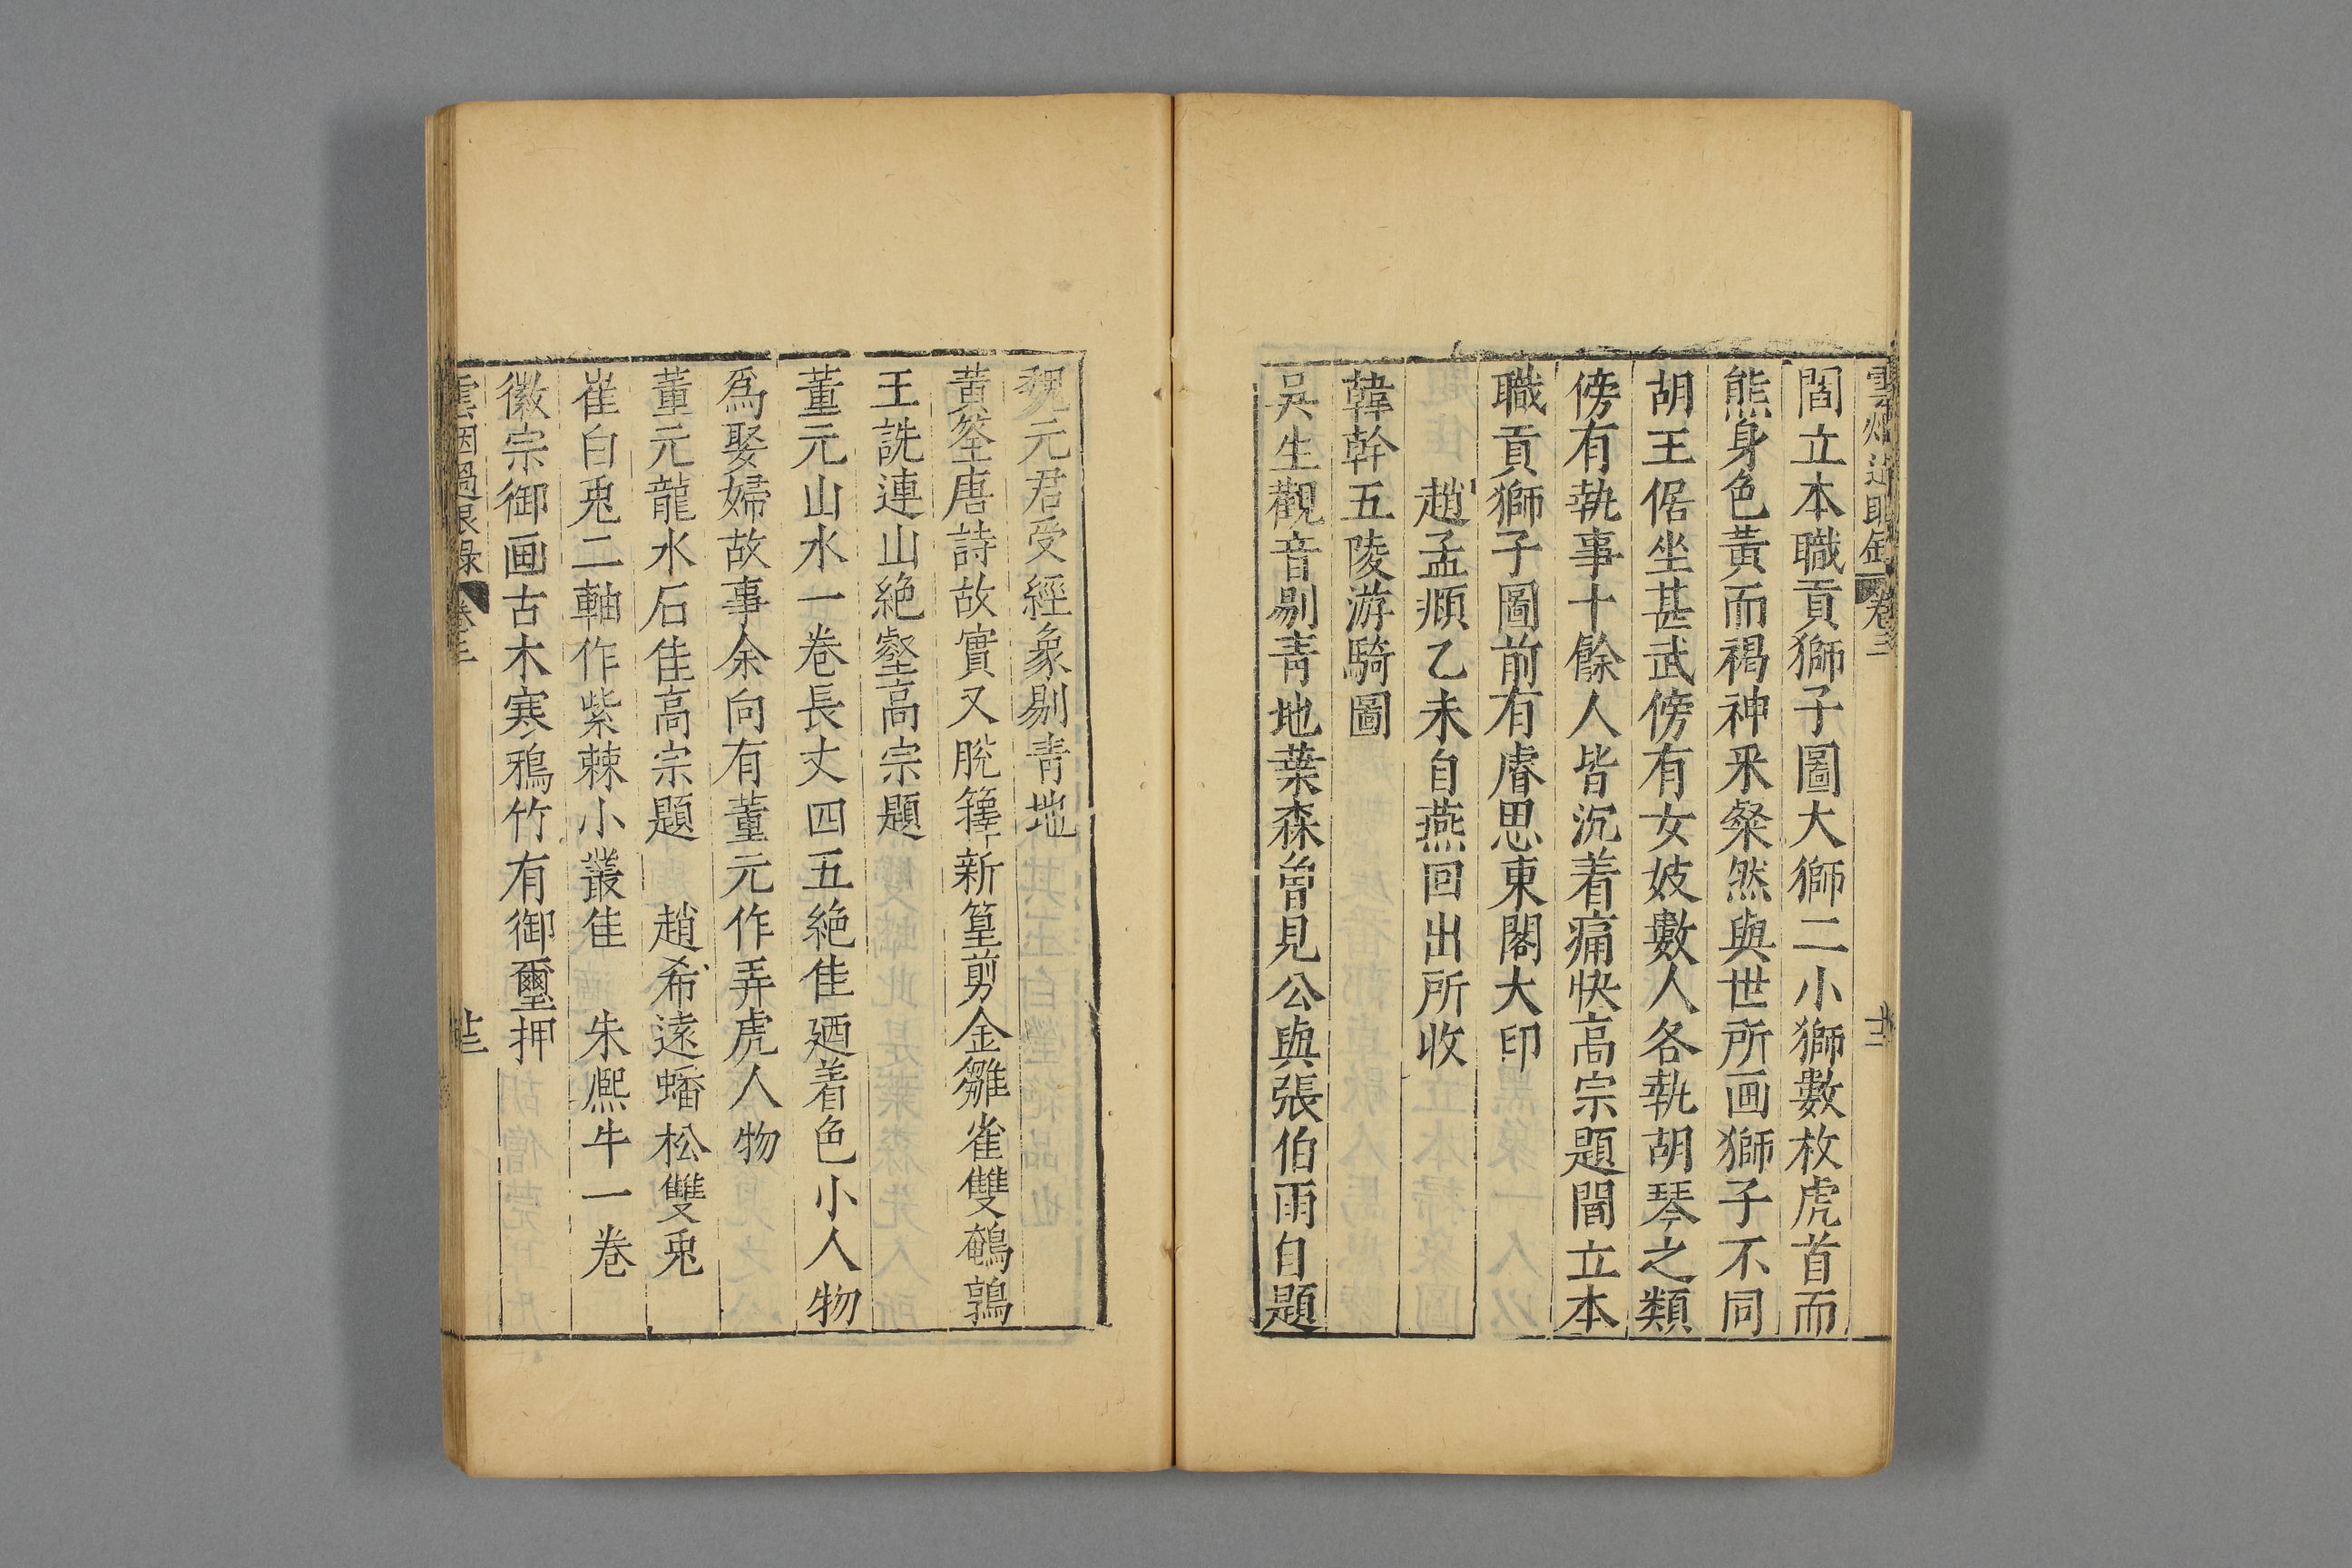 閻立本職貢獅子圖大獅二小獅數枚虎首而
熊身色黃而褐神釆粲然與世所画獅子不同
胡王倨坐甚武傍有女妓數人各執胡琴之類
傍有執事十餘人皆沉着痛快高宗題閻立本
職貢獅子圖前有睿思東閣大印
趙孟頫乙未自燕回出所收
韓幹五陵游騎圖
吳生觀音剔青地葉森曾見公與張伯雨自題
魏元君受經象剔青地
黃筌唐詩故實又脫籜新篁剪金雛雀雙鵪鶉
王詵連山絶壑高宗題
董元山水一卷長丈四五絶佳廼着色小人物
爲娶婦故事余向有董元作弄虎人物
董元龍水石佳高宗題　趙希遠蟠松雙兎
崔白兎二軸作紫棘小叢佳　朱熈牛一卷
徽宗御画古木寒鴉竹有御璽押
雲烟過眼錄 卷三